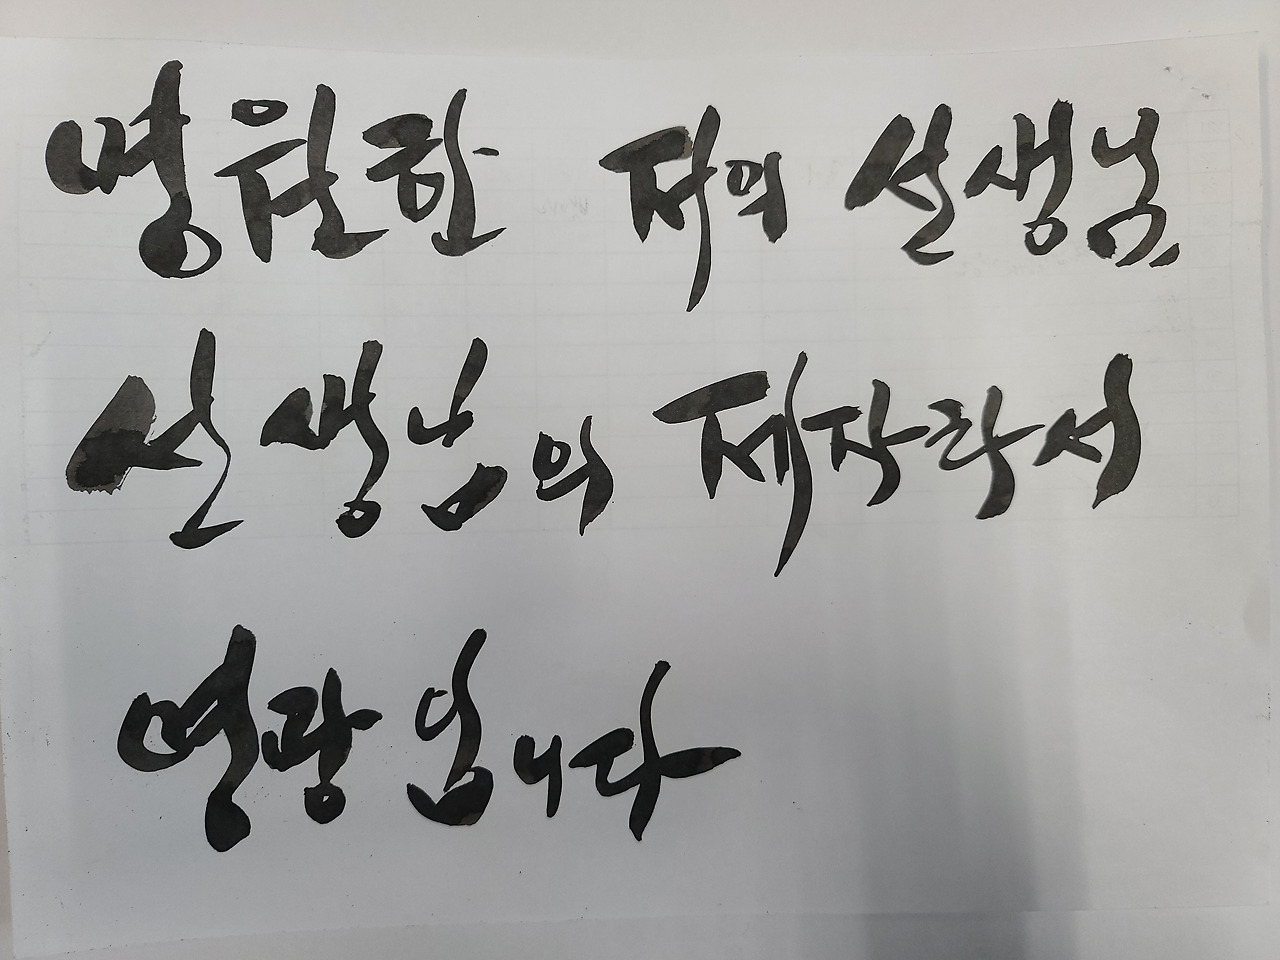 영원한 저의 선생님,
선생님의 제자라서
영광입니다